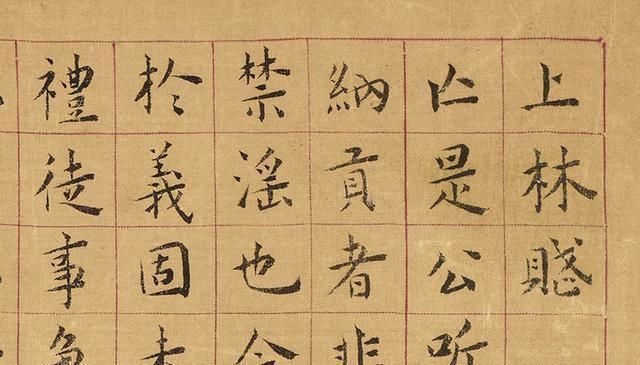 上林賦
亾是公听
納貢者非
禁滛也今
扵義固未
禮徒事争